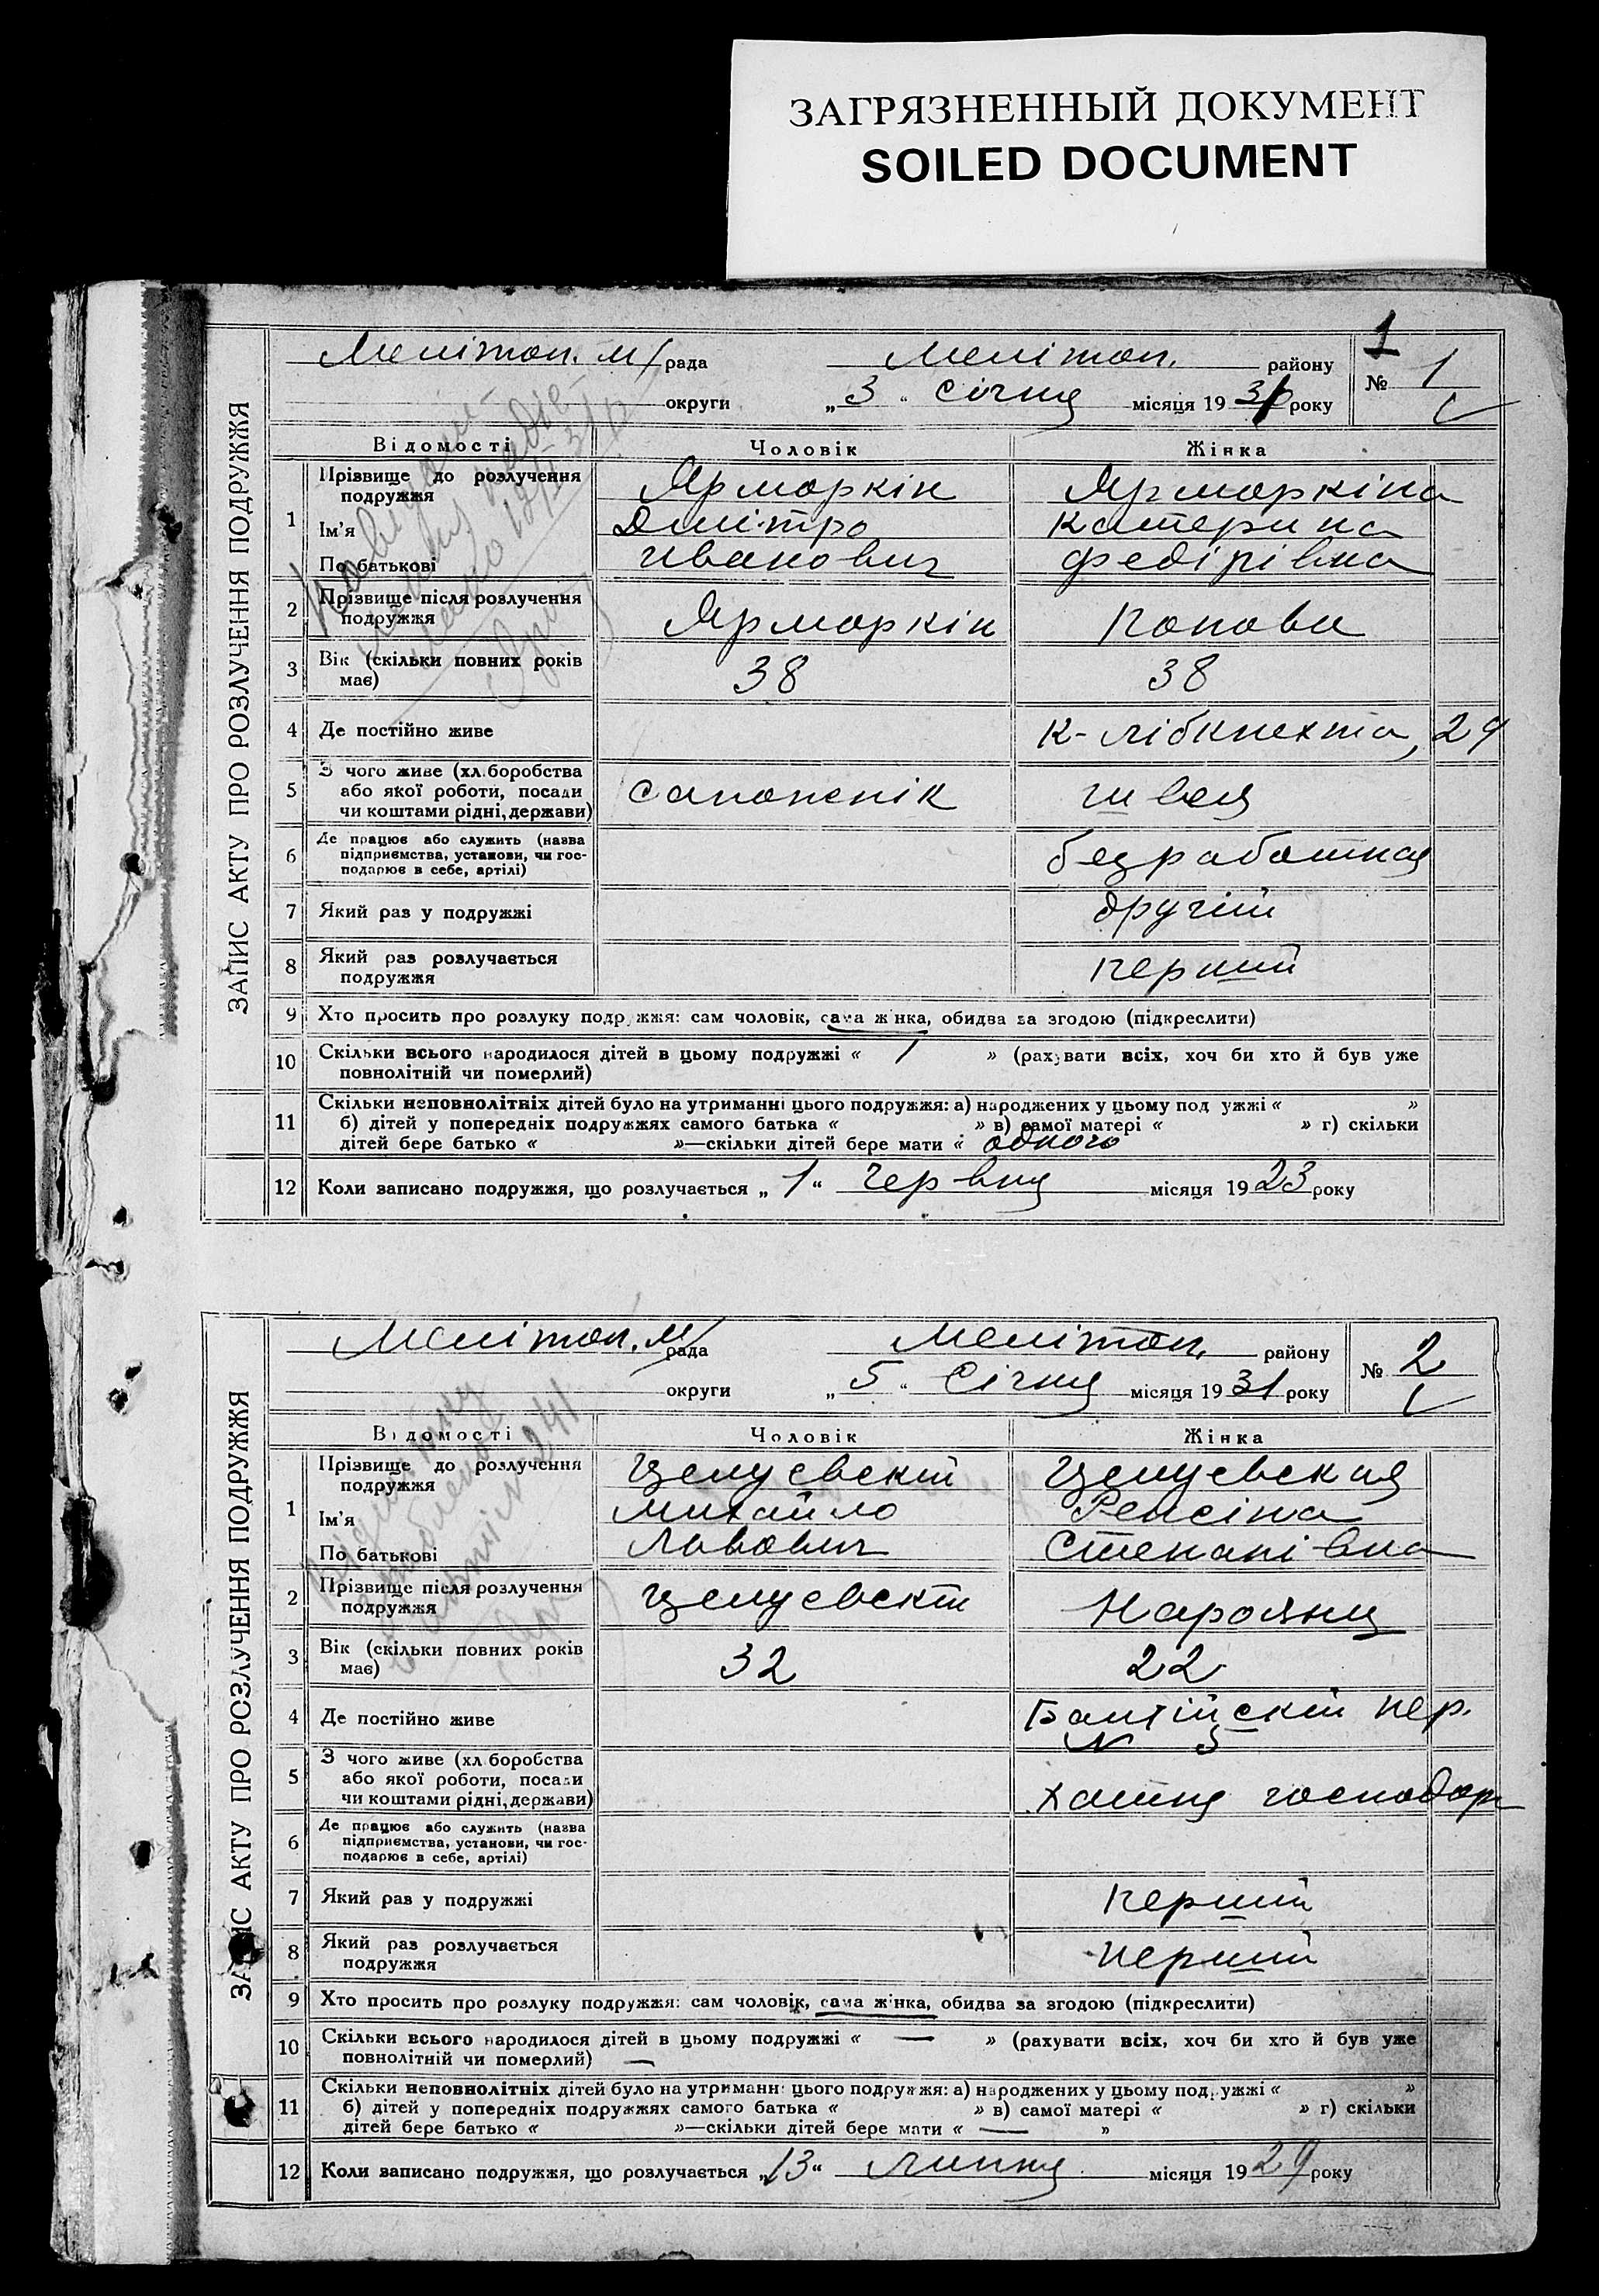 ЗАГРЯЗНЕННЫЙ ДОКУМЕНТ
SOILED DOCUMENT
1
ЗАПИС АКТУ ПРО РОЗЛУЧЕННЯ ПОДРУЖЖЯ
Мелітоп. м/рада Мелітоп. району № 1
округи „3" січня місяця 1931 року
Відомості Чоловік Жінка
1 Прізвище до розлучення подружжя Ярморкін Ярморкіна
Ім'я Дмітро Катерина
По батькові Иванович Федірівна
2 Прізвище після розлучення подружжя Ярморкін Попова
3 Вік (скільки повних років має) 38 38
4 Де постійно живе К-Лібкнехта, 29
5 З чого живе (хл.боробства
або якої роботи, посади
чи коштами рідні, держави) сапожнік швея
6 Де працює або служить (назва
підприємства, установи, чи гос-
подарює в себе, артілі) безработная
7 Який раз у подружжі другій
8 Який раз розлучається
подружжя перший
9 Хто просить про розлуку подружжя: сам чоловік, сама жінка, обидва за згодою (підкреслити)
10 Скільки всього народилося дітей в цьому подружжі « 1 » (рахувати всіх, хоч би хто й був уже
повнолітній чи померлий)
11 Скільки неповнолітніх дітей було на утриманні цього подружжя: а) народжених у цьому подружжі « »
б) дітей у попередніх подружжях самого батька « » в) самої матері « » г) скільки
дітей бере батько « »—скільки дітей бере мати « одного
12 Коли записано подружжя, що розлучається „1" червня місяця 1923 року
ЗАПИС АКТУ ПРО РОЗЛУЧЕННЯ ПОДРУЖЖЯ
Мелітоп. м/рада Мелітоп. району № 2
округи „5" Січня місяця 1931 року
Відомості Чоловік Жінка
1 Прізвище до розлучення
подружжя Целуевскій Целуевская
Ім'я Михайло
По батькові Львович Степанівна
2 Прізвище після розлучення
подружжя Целуевскій
3 Вік (скільки повних років
має) 32 22
4 Де постійно живе Балтійскій пер.
№ 5
5 З чого живе (хл.боробства
або якої роботи, посади
чи коштами рідні, держави) хатня господар
6 Де працює або служить (назва
підприємства, установи, чи гос-
подарює в себе, артілі)
7 Який раз у подружжі перший
8 Який раз розлучається
подружжя перший
9 Хто просить про розлуку подружжя: сам чоловік, сама жінка, обидва за згодою (підкреслити)
10 Скільки всього народилося дітей в цьому подружжі « — » (рахувати всіх, хоч би хто й був уже
повнолітній чи померлий) —
11 Скільки неповнолітніх дітей було на утриманні цього подружжя: а) народжених у цьому подружжі « »
б) дітей у попередніх подружжях самого батька « » в) самої матері « » г) скільки
дітей бере батько « »—скільки дітей бере мати « — »
12 Коли записано подружжя, що розлучається „13" липня місяця 1929 року